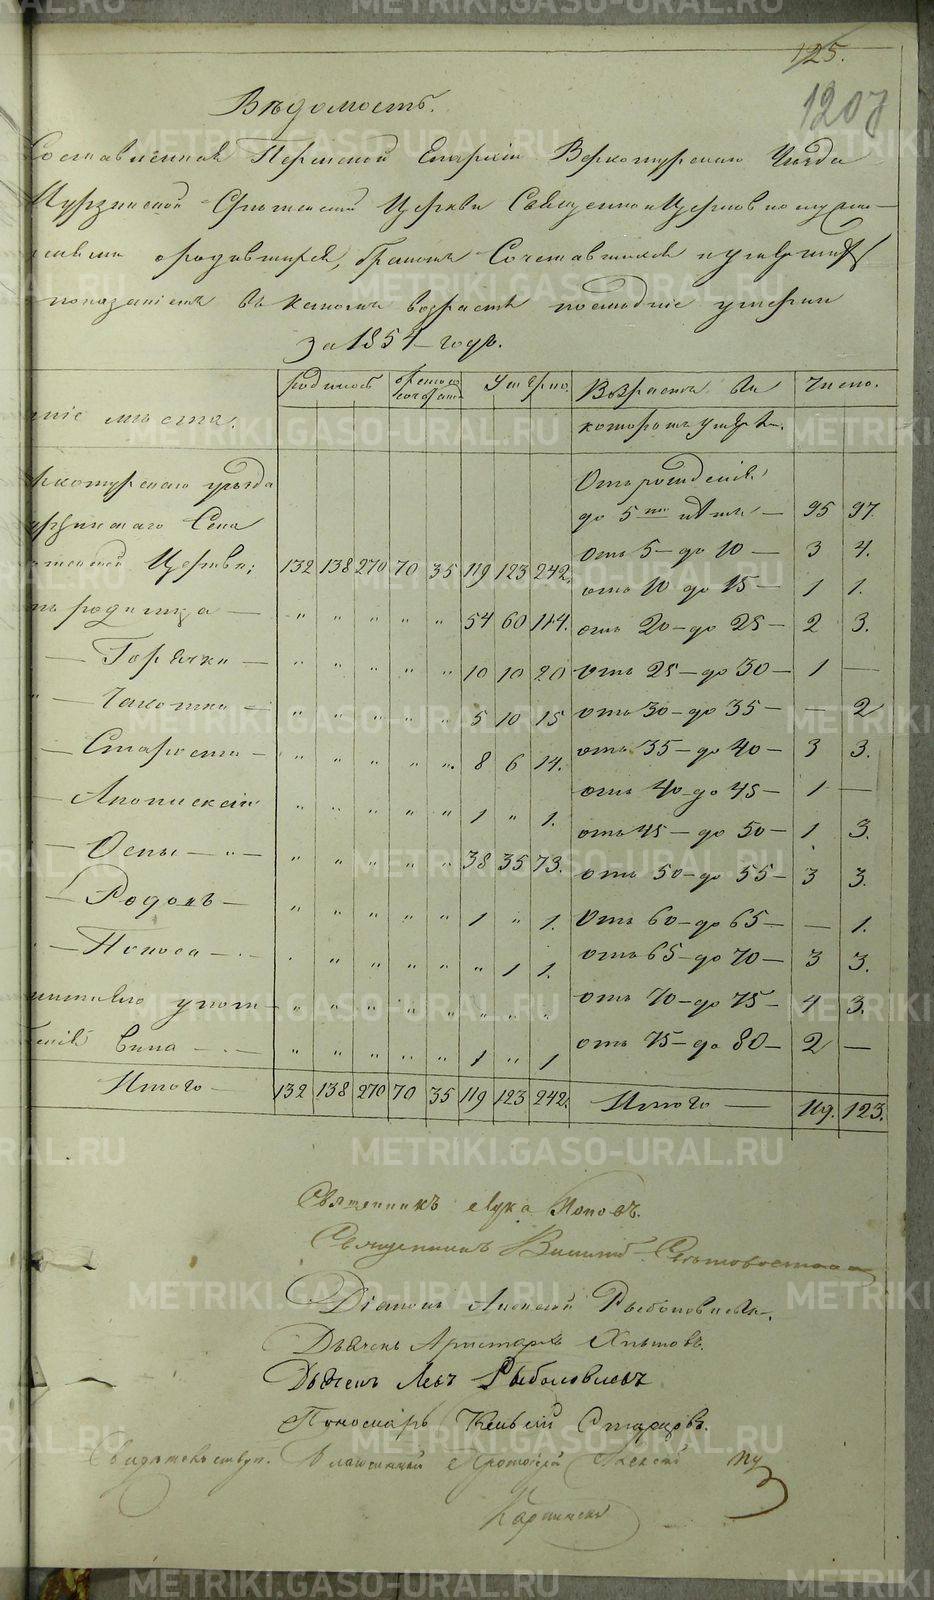 125.
1207
Вѣдомость.
Составленная Пермской Епархіи Верхотурскаго Уѣзда
Мурзинской Срѣтенской Церкви Священноцерковнослужи-
телями о родившихся, бракомъ Сочетавшихся и умершихъ
показаніемъ въ какомъ возрастѣ послѣдніе умерли
за 1854 годъ.
родилось
бракомъ сочетал.
Умерло.
Возрастъ въ
Число.
ніе мѣста.
которомъ умерли.
рхотурскаго уѣзда
Отъ рожденія
урзинскаго Села
до 5 ти лѣтъ — 95 97.
тенской Церкви; 132 138 270 70 35 119 123 242.
отъ 5 — до 10 — 3 4.
отъ 10 до 15 — 1 1.
родимца — " " " " " 54 60 114.
отъ 20 — до 25 — 2 3.
— Горячки — " " " " " 10 10 20
отъ 25 — до 30 — 1 —
— Чахотки — " " " " " 5 10 15
отъ 30 — до 35 — — 2
— Старости — " " " " " 8 6 14.
отъ 35 — до 40 — 3 3.
отъ 40 до 45 — 1 —
— " " " " " 1 " 1.
отъ 45 — до 50 — 1 3.
— Оспы — " — " " " " " 38 35 73.
отъ 50 — до 55 — 3 3.
— Родовъ — " " " " " 1 " 1.
отъ 60 — до 65 — — 1.
— Поноса — " " " " " " 1 1.
отъ 65 — до 70 — 3 3.
" " " " " " " "
отъ 70 — до 75 — 4 3.
вина — " " " " " 1 " 1
отъ 75 — до 80 — 2 —
Итого — 132 138 270 70 35 119 123 242.
Итого — 119. 123.
Священникъ Лука Поповъ.
Священникъ
Діаконъ Алексѣй Рыболовлевъ.
Дьячекъ Аристархъ Хлыновъ.
Дьячекъ Левъ Рыболовлевъ
Пономарь Старцовъ.
Свидѣтельствов. Благочинный Протоіерей
METRIKI.GASO-URAL.RU